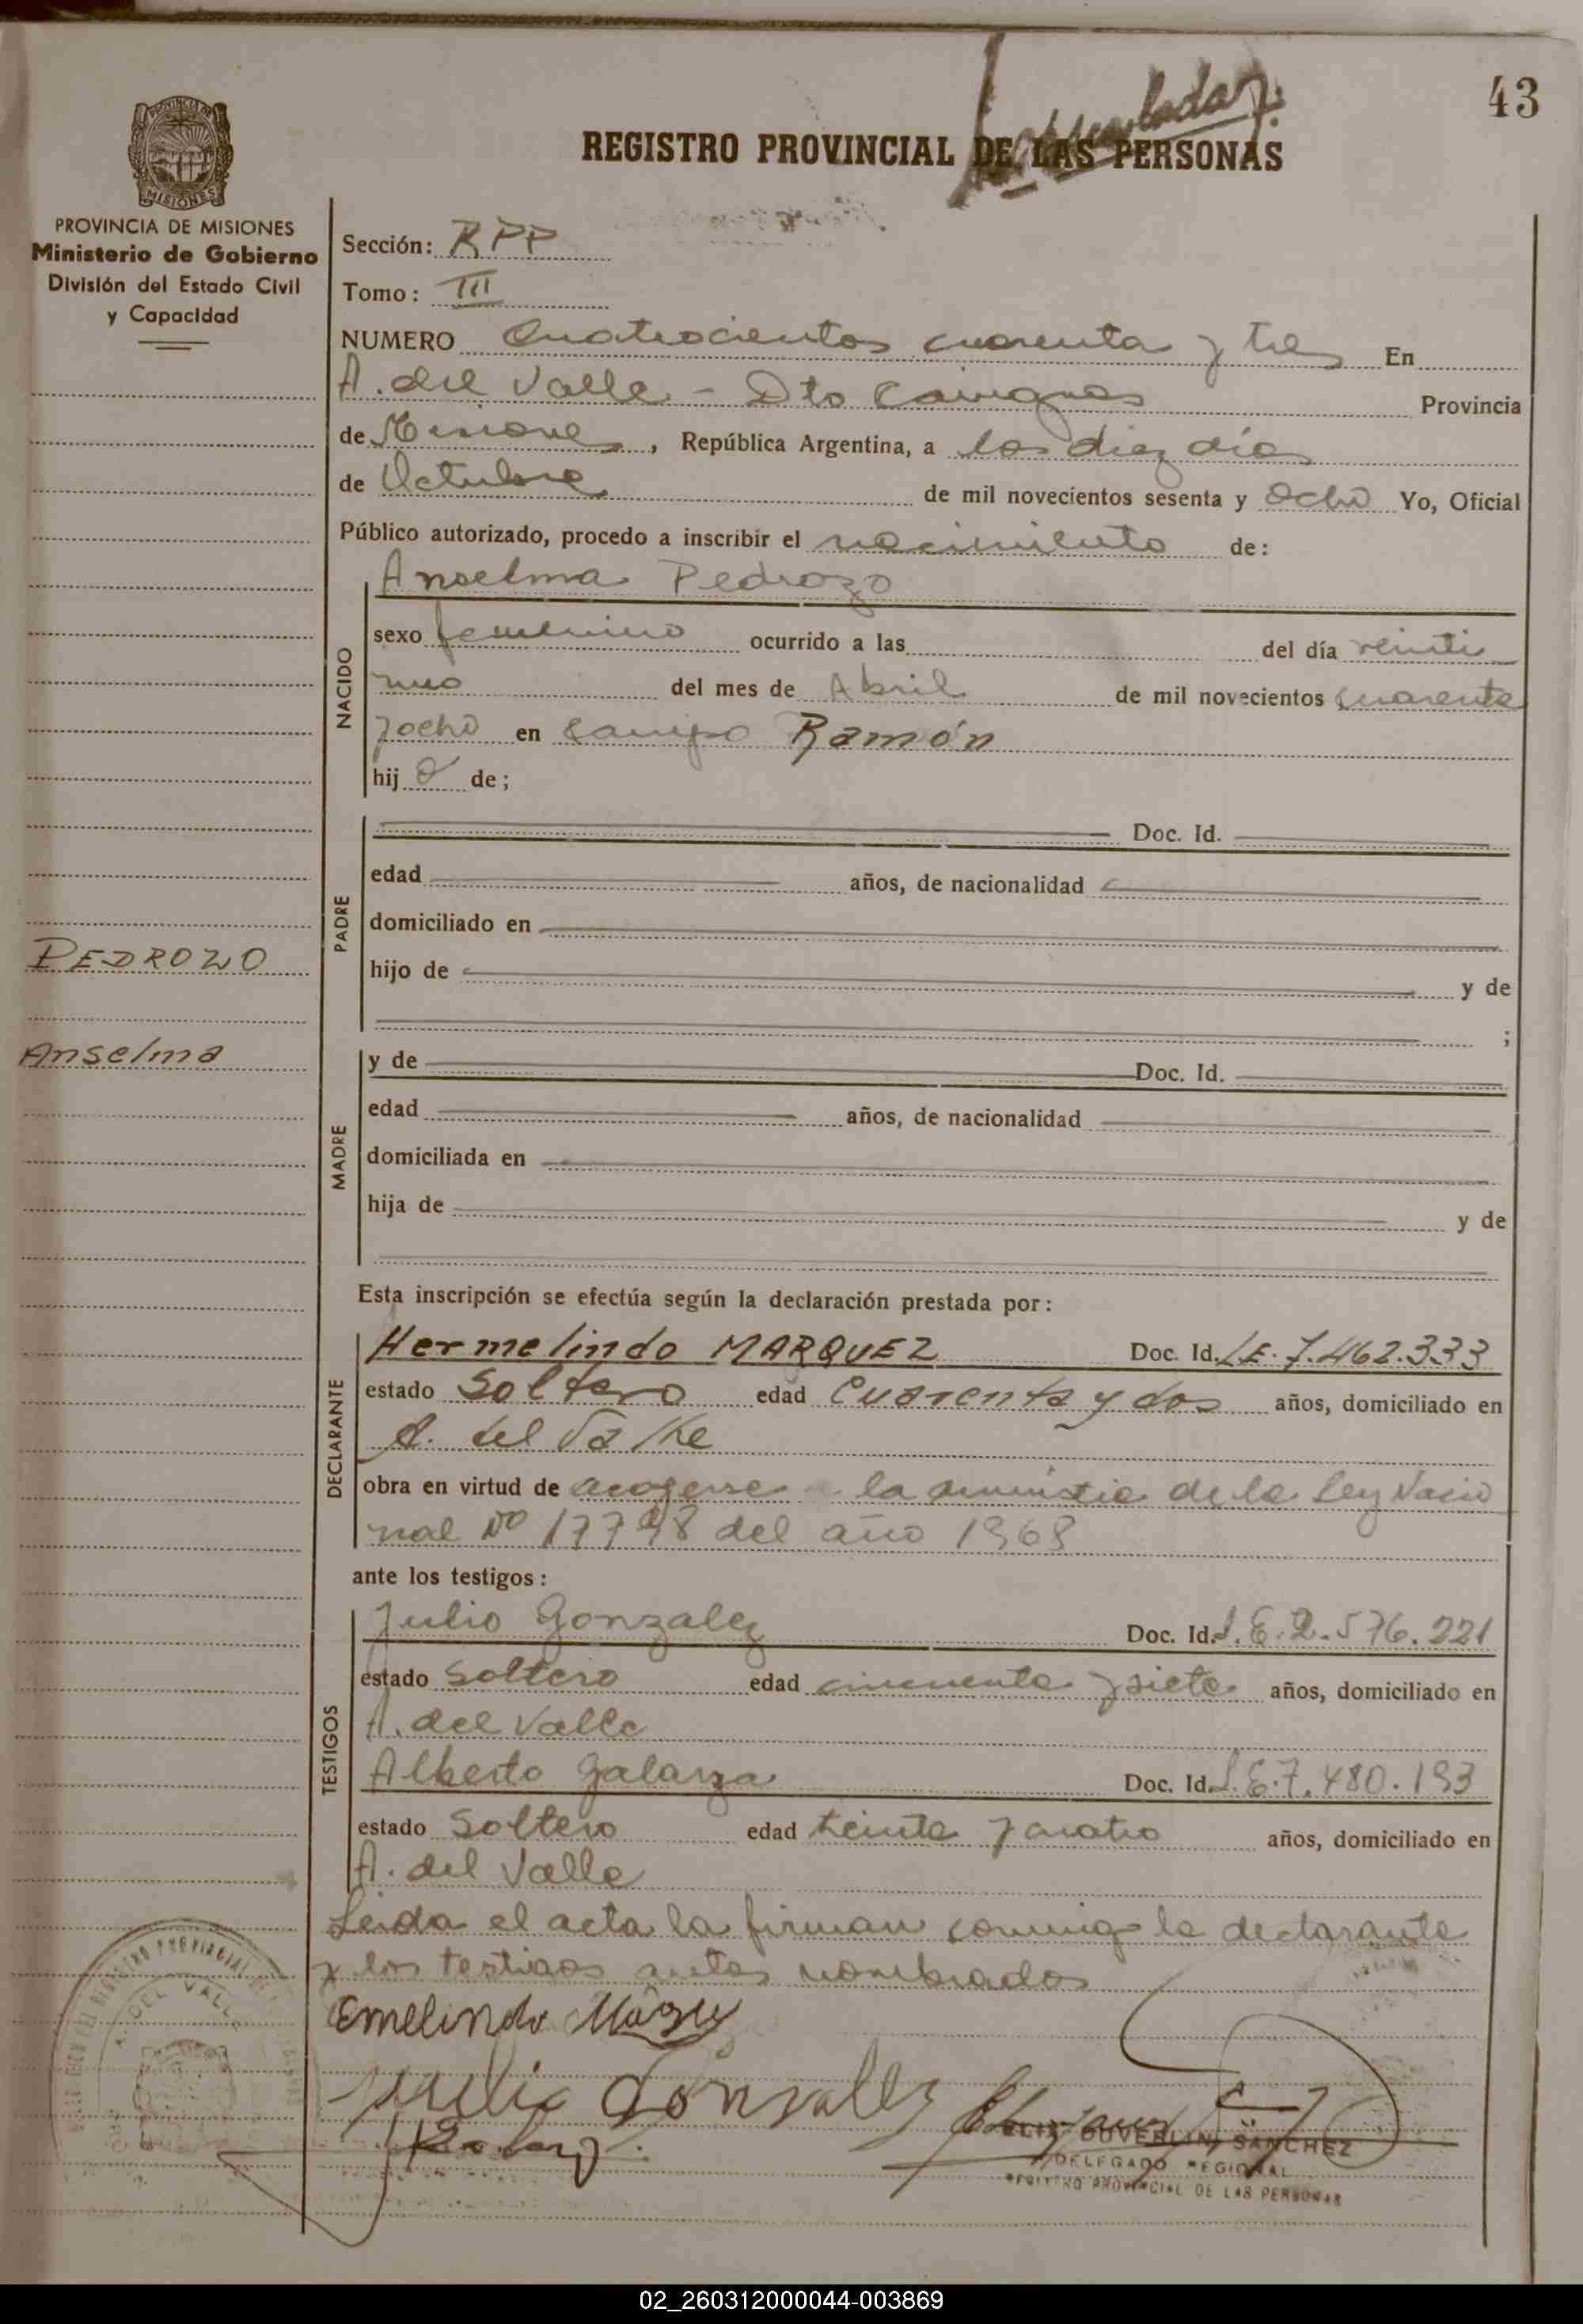 43
REGISTRO PROVINCIAL DE LAS PERSONAS
PROVINCIA DE
MISIONES
PROVINCIA DE MISIONES
Ministerio de Gobierno
División del Estado Civil
y Capacidad
Sección: RPP
Tomo: III
NUMERO Cuatrocientos cuarenta y tres En
A. del Valle - Dto Cainguas Provincia
de Misiones, República Argentina, a los diez días
de Octubre de mil novecientos sesenta y ocho Yo, Oficial
Público autorizado, procedo a inscribir el nacimiento de:
Anselma Pedrozo
NACIDO
sexo femenino ocurrido a las del día veinti
uno del mes de Abril de mil novecientos cuarenta
y ocho en Campo Ramón
hij a de;
PADRE
Doc. Id.
edad años, de nacionalidad
domiciliado en
PEDROZO
hijo de y de
;
Anselma
MADRE
y de Doc. Id.
edad años, de nacionalidad
domiciliada en
hija de y de
Esta inscripción se efectúa según la declaración prestada por:
DECLARANTE
Hermelindo MARQUEZ Doc. Id. LE. 7.462.333
estado Soltero edad Cuarenta y dos años, domiciliado en
A. del Valle
obra en virtud de acogerse a la amnistia de la Ley Nacio
nal Nº 17798 del año 1968
ante los testigos:
TESTIGOS
Julio Gonzalez Doc. Id. L.E. 2.576.221
estado Soltero edad cincuenta y siete años, domiciliado en
A. del Valle
Alberto Galarza Doc. Id. L.E. 7.480.193
estado Soltero edad treinta y cuatro años, domiciliado en
A. del Valle
Leida el acta la firman conmigo la declarante
y los testigos antes nombrados
Emelindo
Julio Gonzalez
DUVERLIN SANCHEZ
DELEGADO REGIONAL
REGISTRO PROVINCIAL DE LAS PERSONAS
A. DEL VALLE
02_260312000044-003869